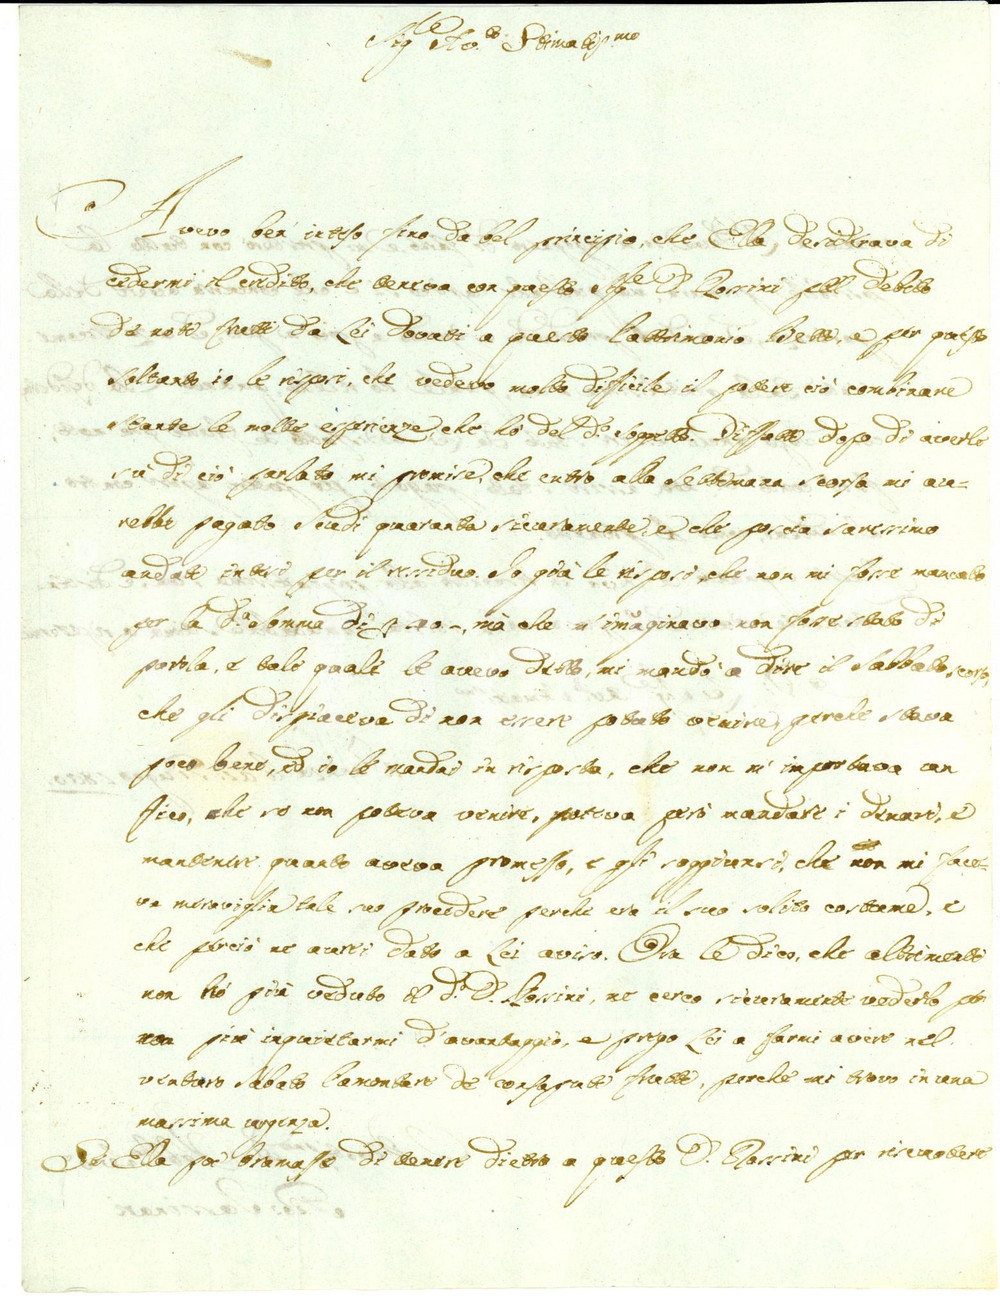 Sig.re Av.to Stimatiss.mo
Avevo ben inteso fino da bel principio, che Ella desiderava di
cedermi il credito, che teneva con questo Sig.re D. Rossini pel debito
de noti frutti da Lei dovuti a questo Patrimonio Betti, e per questo
soltanto io le risposi, che vedevo molto dificile il poter ciò combinare
stante le molte esperienze, che hò del d.o soggetto. Diffatti dopo di averle
sù di ciò parlato mi promise, che entro alla settimana scorsa mi au-
rebbe pagato scudi quaranta sicuramente e che poscia saressimo
andati intesi per il residuo. Io già le risposi, che non mi fosse mancato
per la d.a somma di, mà che m'imaginavo non fosse stato di
parola, e tale quale le avevo detto, mi mandò a dire il Sabbato scorso,
che gli dispiaceva di non essere potuto venire, perche stava
poco bene, ed io le mandai in risposta, che non m'importava un
fico, che se non poteva venire, poteva però mandare i denari, e
mantenere quanto aveva promesso, e gli soggiunsi, che non mi face-
va meraviglia tale suo procedere perche era il suo solito costume, e
che perciò ne aurei dato a Lei aviso. Ora le dico, che altrimenti
non hò più veduto il d.o D. Rossini, ne cerco sicuramente vederlo per
non più inquietarmi d'avantaggio, e prego Lei a farmi avere nel
venturo sabato l'amontare de consaputi frutti, perche mi trovo in una
massima urgenza.
Se Ella poi bramasse di tenere dietro a questo D. Rossini per riscuotere